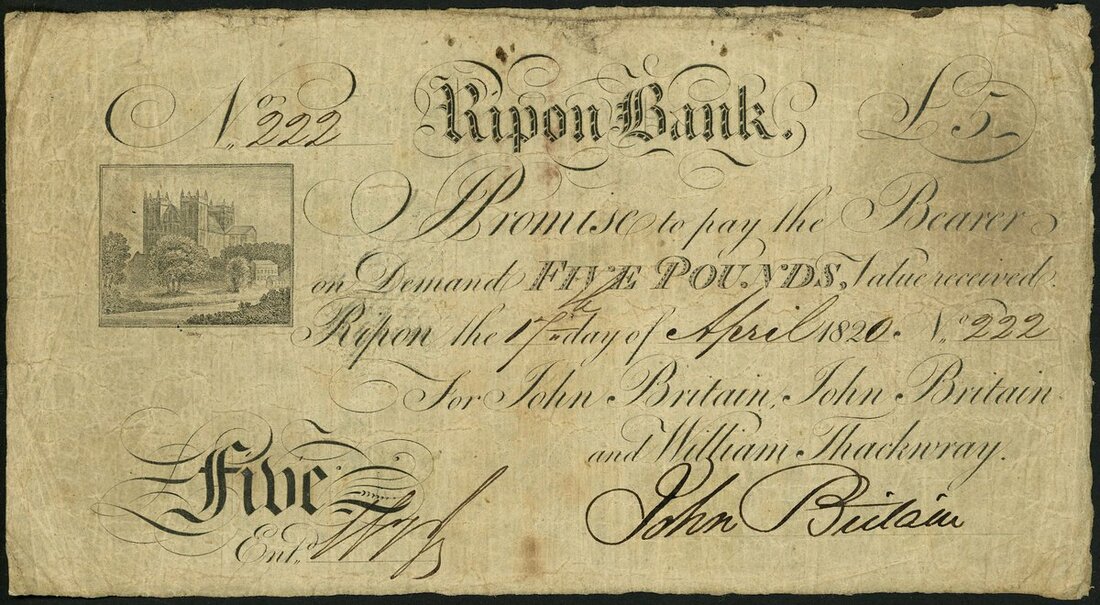 No. 222 Ripon Bank. £5
I Promise to pay the Bearer
on Demand FIVE POUNDS, Value received.
Ripon the 17th day of April 1820. No. 222
For John Britain, John Britain
and William Thackwray.
Five
Entd.
John Britain